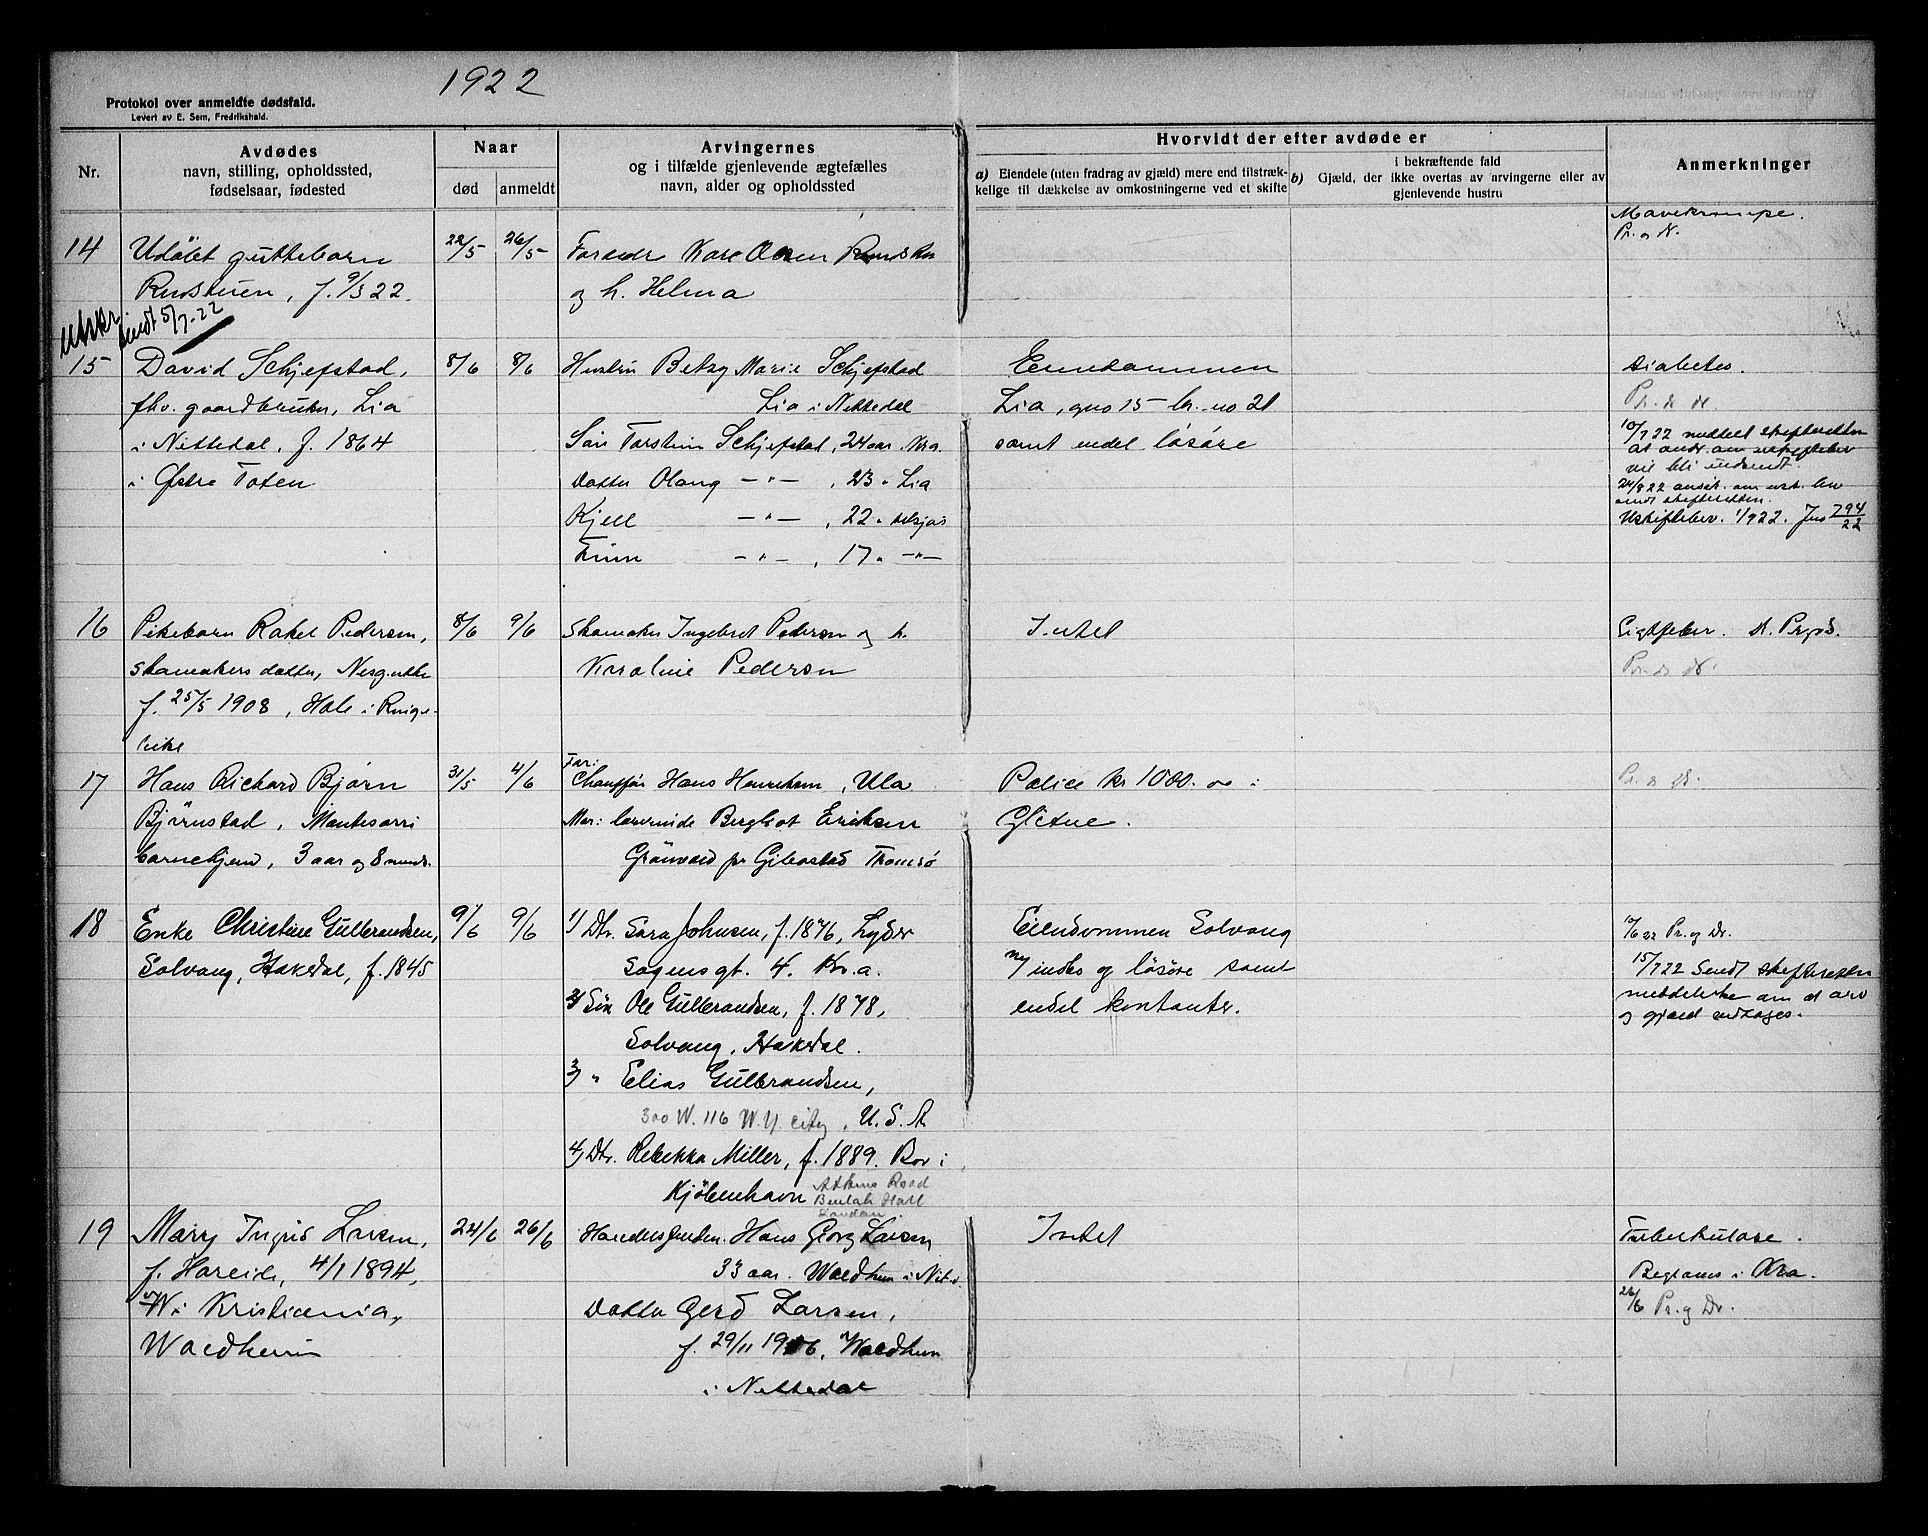 1922
Protokol over anmeldte dødsfald.
Levert av E. Sem, Fredrikshald.
Nr.
Avdødes
navn, stilling, opholdssted,
fødselsaar, fødested
Naar
død
anmeldt
Arvingernes
og i tilfælde gjenlevende ægtefælles
navn, alder og opholdssted
Hvorvidt der efter avdøde er
a) Eiendele (uten fradrag av gjæld) mere end tilstræk-
kelige til dækkelse av omkostningerne ved et skifte
i bekræftende fald
b) Gjæld, der ikke overtas av arvingerne eller av
gjenlevende hustru
Anmerkninger
14 Udøbt guttebarn 22/5 26/5 Foreldr Kare Olsen
Rudstuen, f. 9/3 22. og h. Helma
Mavekrampe.
Pr. og N.
utskr. sendt 5/7-22
15 David Schjefstad, 8/6 8/6 Hustru Betzy Marie Schjefstad Eiendommen Diabetes.
fhv. gaardbruker, Lia Lia i Nittedal Lia, gno 15 br. no 21
i Nittedal, f. 1864 Søn Torstein Schjefstad, 24 aar, Kra. samt endel løsøre
i Østre Toten Datter Olaug -"- , 23 " Lia
Kjell -"- , 22 "
-"- , 17 " -"-
10/7 22 meddelt skifteretten
at andr. om uskiftebev
vil bli indsendt.
24/8 22 ansøk. om usk. bev
sendt skifteretten.
Uskiftebev. 1/9 22. Jno 794/22
16 Pikebarn Rakel Pedersen, 8/6 9/6 Skomaker Ingebret Pedersen og h. Intet Gigtfeber.
skomakers datter, Karoline Pedersen
f. 25/5 1908, Hole i Ringe-
rike
17 Hans Richard Bjørn 31/5 4/6 Far: Chauffør Hans Henriksen, Ula Police kr 1000.00 i
Bjørnstad, Montesorri Mor: lærerinde Bergliot Eriksen Gjetue.
barnehjem, 3 aar og 8 mndr. Grönvold pr Gibostad Tromsö
18 Enke Christine Gulbrandsen, 9/6 9/6 1/ Dtr. Sara Johnsen, f. 1876, Lyder Eiendommen Solvang 10/6 22 Pr. og Dr.
Solvang, Hakedal, f. 1845 Sagensgt. 4. Kr.a. m/ indbo og løsöre samt 15/7 22 Sendt skifteretten
2/ Søn Ole Gulbrandsen, f. 1878, endel kontanter. meddelelse om at arv
Solvang, Hakedal. og gjæld vedtages.
3/ " Elias Gulbrandsen,
300 W. 116 N.Y. City, U.S.A.
4/ Dtr. Rebekka Miller, f. 1889. Bor i
Kjöbenhavn Atkins Road
Beulah Hall
London.
19 Mary Ingrid Larsen, 24/6 26/6 Hans Georg Larsen Intet Tuberkulose.
f. Hareide, 4/1 1894, 33 aar. Waldheim i Nit.d. Begraves i Kra.
i Kristiania, Datter Gerd Larsen, 26/6 Pr. og Dr.
Waldheim f. 29/11 1916, Waldheim
i Nittedal